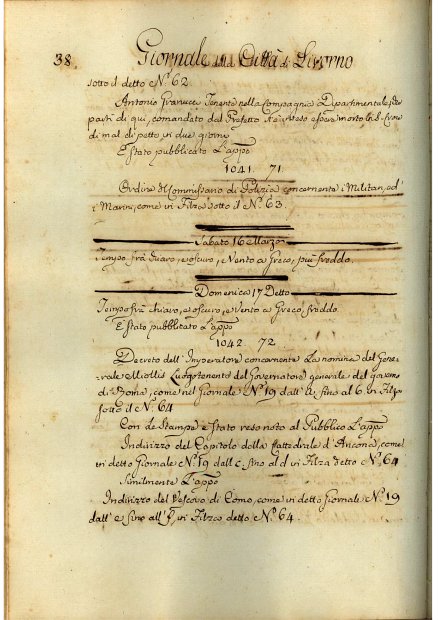 38. Giornale della Città di Livorno
sotto il detto N.º 62.
Antonio Granucci Tenente nella Compagnia Dipartimentale
parti di qui, comandato dal Prefetto
di mal di petto in due giorni
È stato pubblicato L'app.º
1041 71
Ordine Commissario di Polizia concernente i Militari, ed
i Marini, come in Filza sotto il N.º 63.
Sabato 16 Marzo
Tempo frà chiaro, e oscuro, e Vento a Greco, più freddo.
Domenica 17 Detto
Tempo frà chiaro, e oscuro, e Vento a Greco, freddo
È stato pubblicato L'app.º
1042 72
Decreto dell'Imperatore concernente La nomina del Gene-
rale Miollis Luogotenente del Governatore generale del
di Roma, come nel Giornale N.º 19 dall' a sino al b in Filza
sotto il N.º 64
Con le Stampe è stato reso noto al Pubblico L'app.º
Indirizzo del Capitolo della Cattedrale d'Ancona, come
in detto Giornale N.º 19 dall c sino al d in Filza detto N.º 64
Similmente L'app.º
Indirizzo del Vescovo di Como, come in detto Giornale N.º 19
dall' e sino all' f in Filza detto N.º 64.